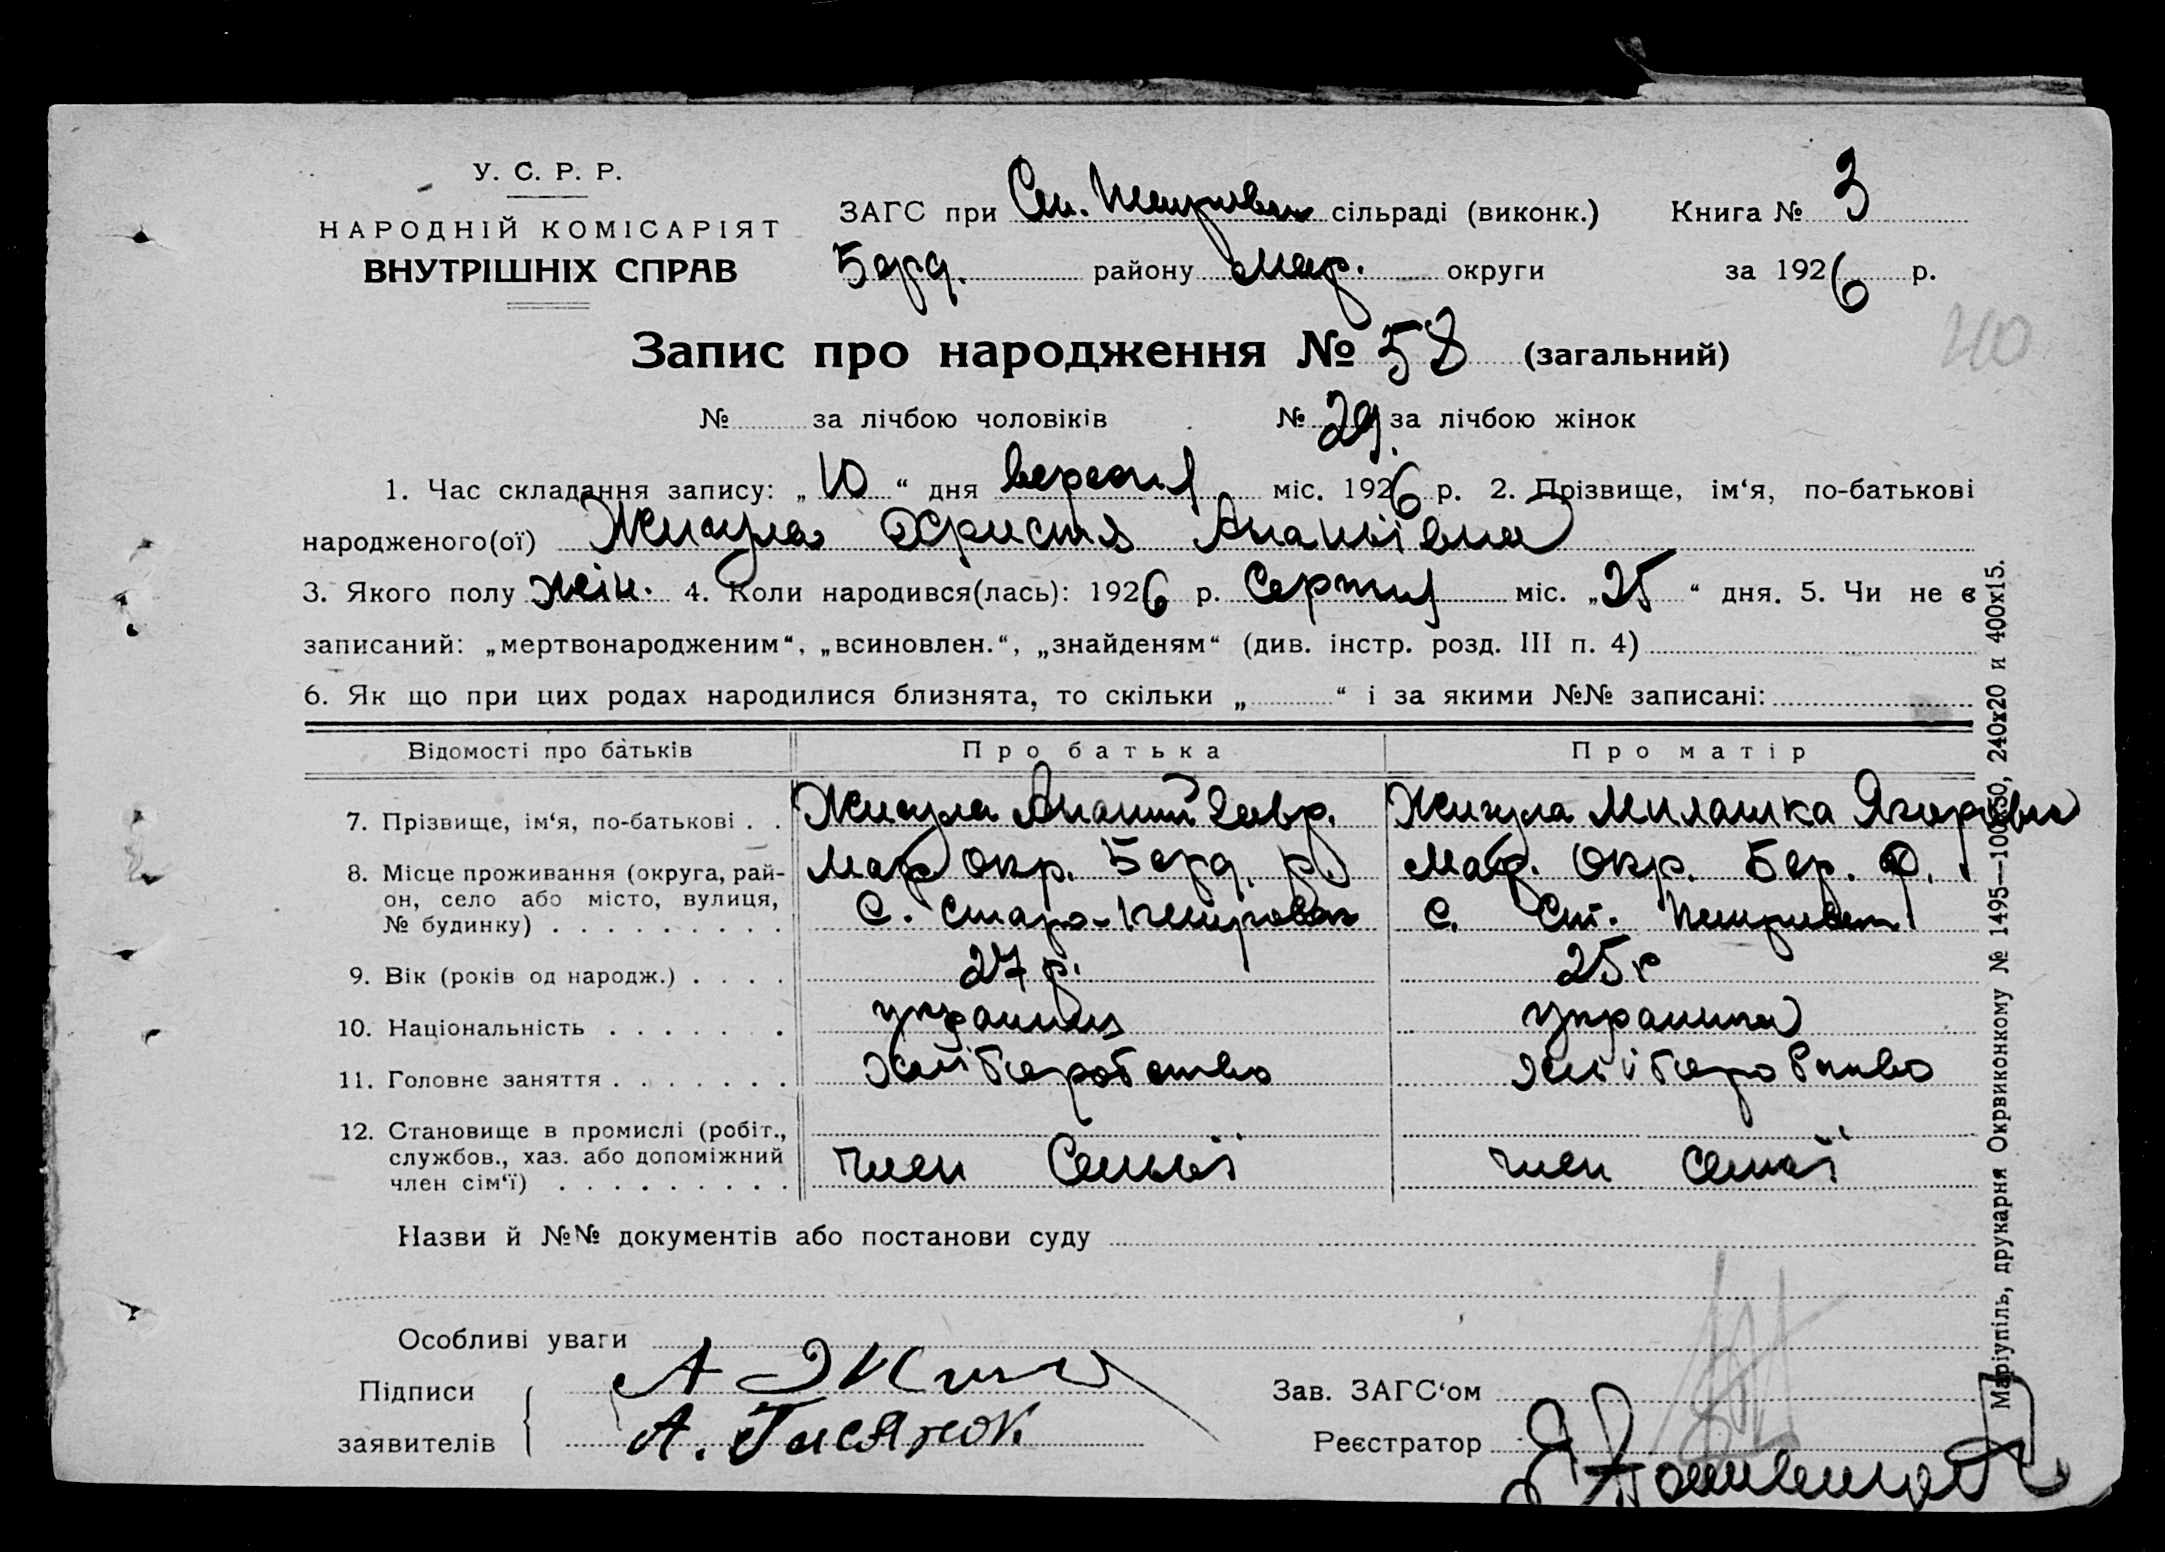 У. С. Р. Р.
НАРОДНІЙ КОМІСАРІЯТ
ВНУТРІШНІХ СПРАВ
ЗАГС при Ст. Петровск сільраді (виконк.) Книга № 3
Берд. району Мар. округи за 1926 р.
40
Запис про народження № 58 (загальний)
№ за лічбою чоловіків № 29 за лічбою жінок
1. Час складання запису: „10“ дня вересня міс. 1926 р. 2. Прізвище, ім‘я, по-батькові
народженого(ої) Жигула Христя Ананьівна
3. Якого полу жін. 4. Коли народився(лась): 1926 р. Серпня міс. „25“ дня. 5. Чи не є
записаний: „мертвонародженим“, „всиновлен.“, „знайденям“ (див. інстр. розд. III п. 4)
6. Як що при цих родах народилися близнята, то скільки „ “ і за якими №№ записані:
Відомості про батьків Про батька Про матір
7. Прізвище, ім‘я, по-батькові . . Жигула Ананий Лавр. Жигула Милашка Ягоровна
8. Місце проживання (округа, рай- Мар окр. Берд. р. Мар. Окр. Бер. Р.
он, село або місто, вулиця, с. Старо-Петровск с. Ст. Петривск
№ будинку) . . . . . . . . .
9. Вік (років од народж.) . . . . 27 р. 25 р
10. Національність . . . . . . . украинец украинка
11. Головне заняття . . . . . . . хлібороб ство хлібороб ство
12. Становище в промислі (робіт.,
службов., хаз. або допоміжний член Семьї член семьї
член сім‘ї) . . . . . . . . .
Назви й №№ документів або постанови суду
Особливі уваги
Підписи А Жи
заявителів А.
Зав. ЗАГС‘ом
Реєстратор
Маріупіль, друкарня Окрвиконкому № 1495—100х50, 240х20 и 400х15.